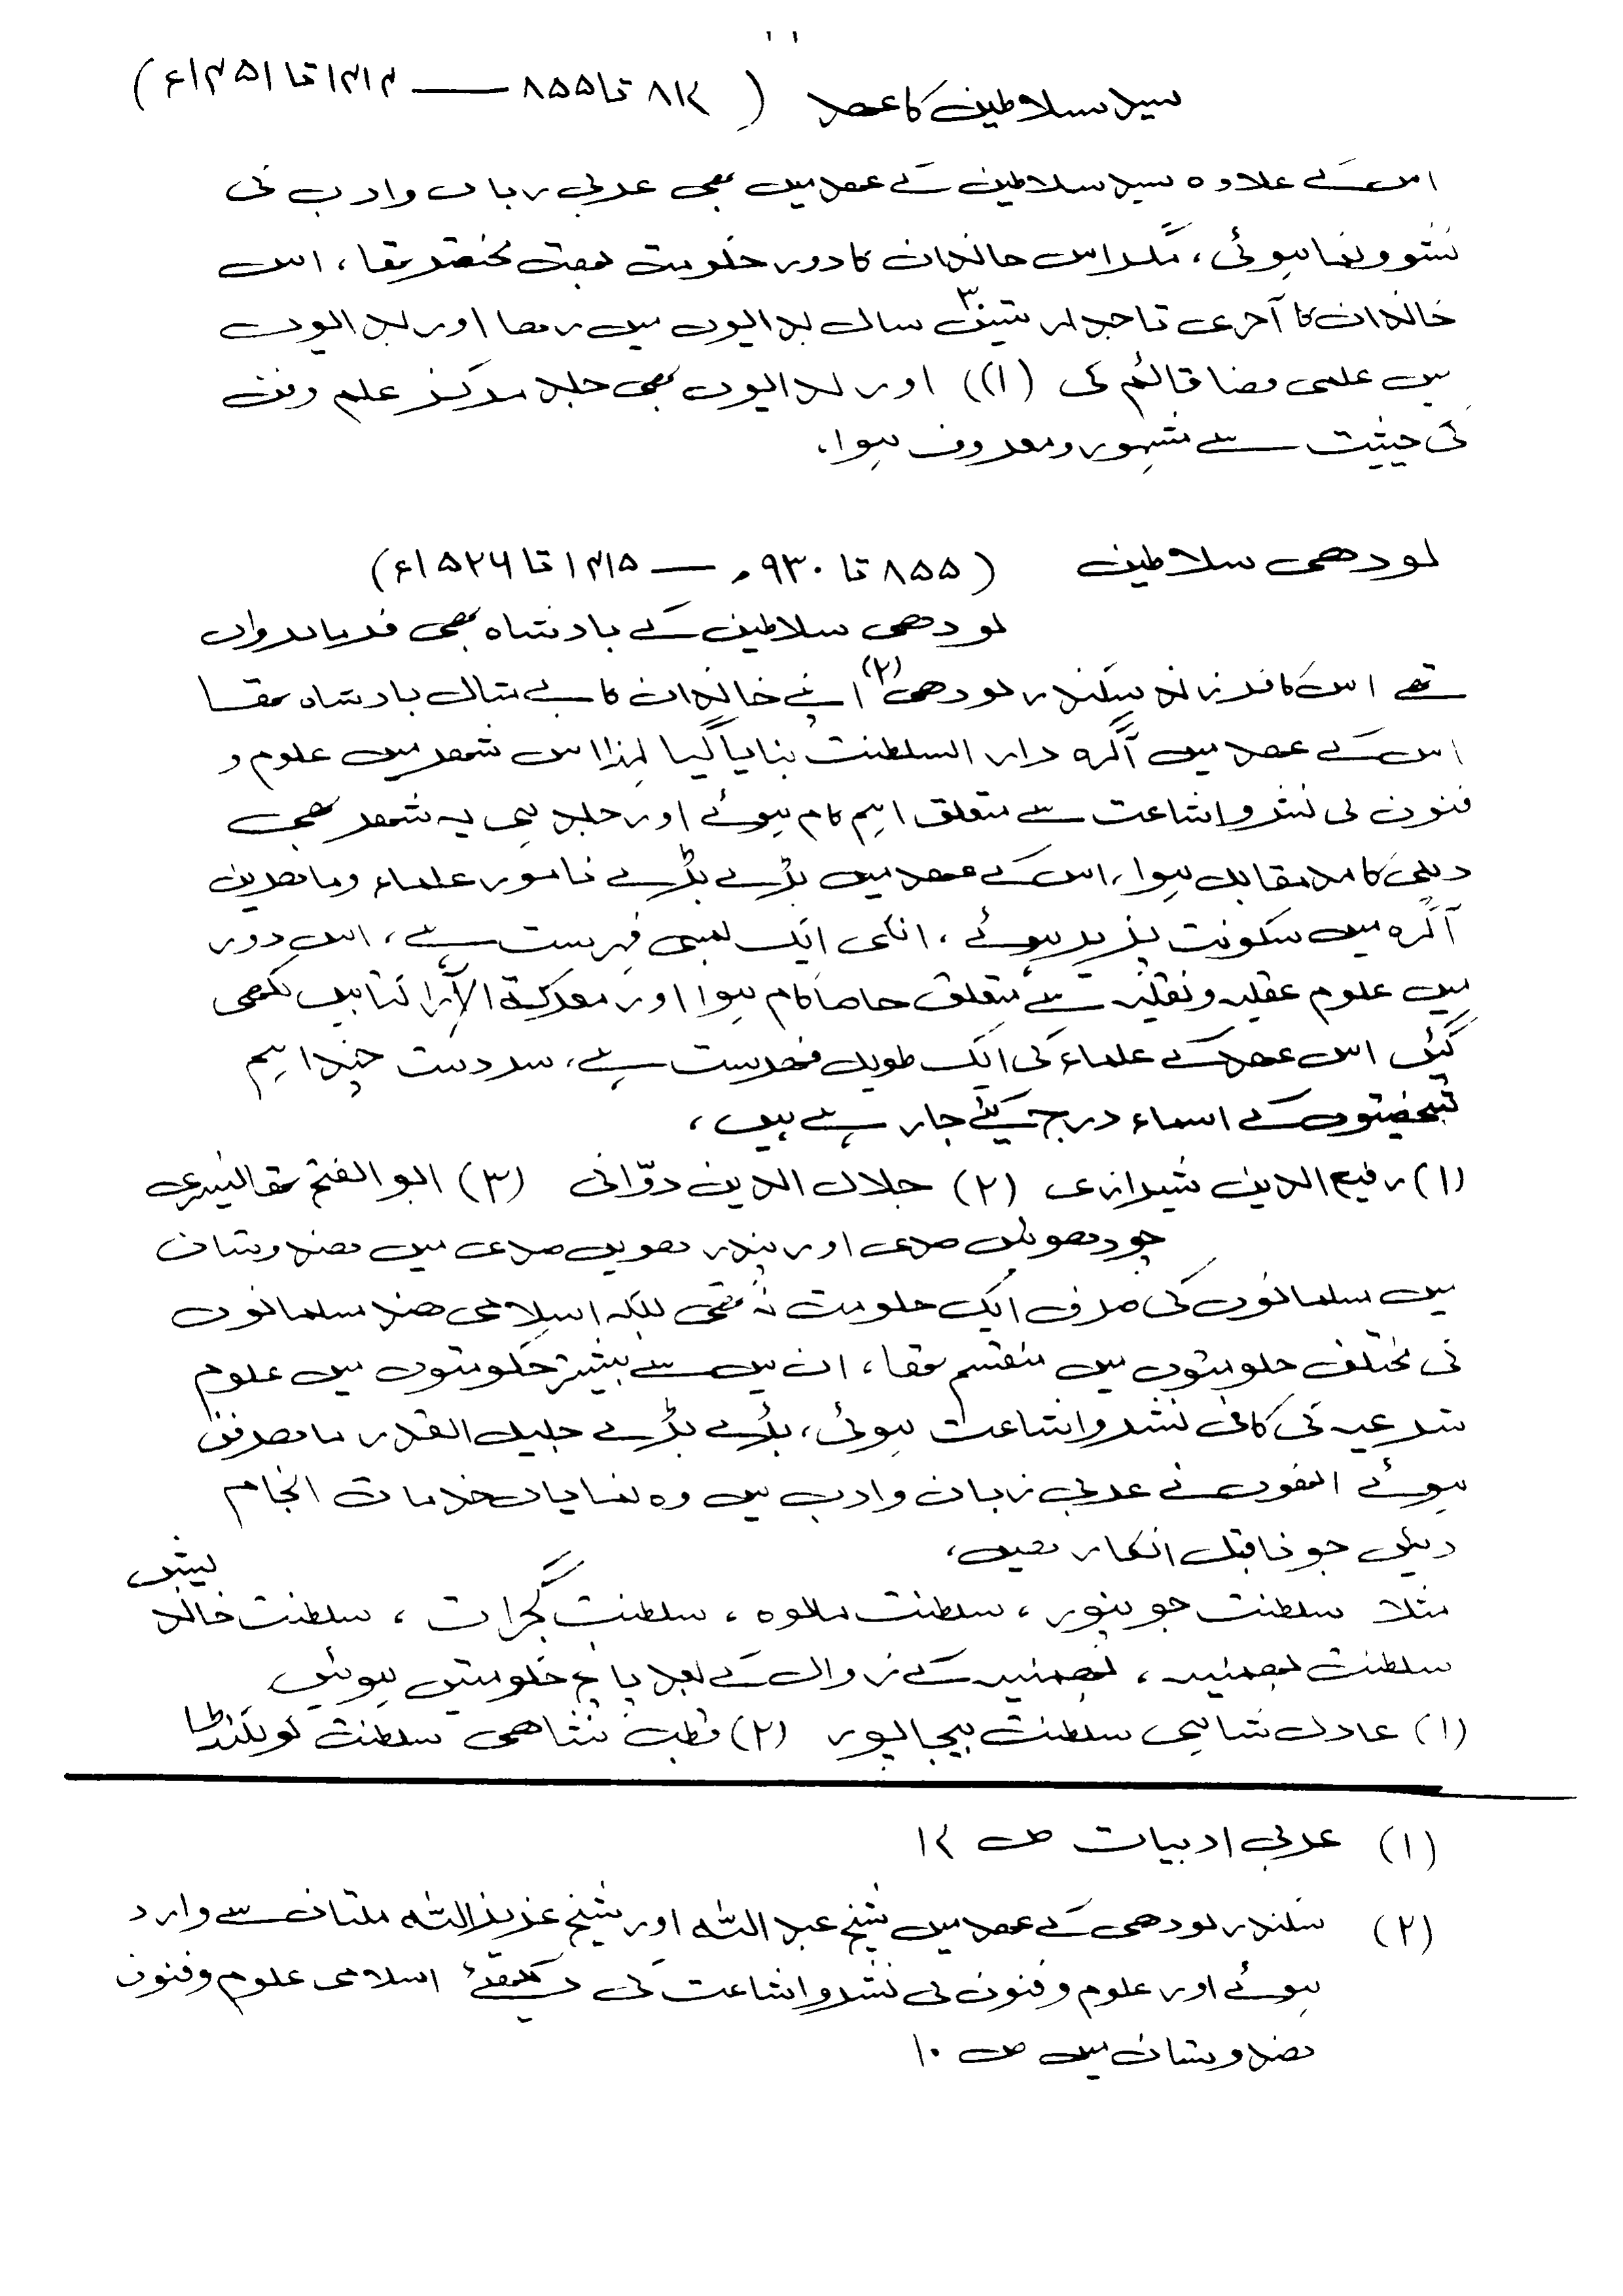 ۱۱
سید سلاطین کا عہد ( ۸۱۷ تا ۸۵۵ — ۱۴۱۴ تا ۱۴۵۱ء)
اس کے علاوہ سید سلاطین کے عہد میں بھی عربی زبان و ادب کی
نشو و نما ہوئی ، مگر اس خاندان کا دور حکومت بہت مختصر تھا ، اس
خاندان کا آخری تاجدار تیس۳۰ سال بدایوں میں رہا اور بدایوں
میں علمی فضا قائم کی (۱) اور بدایوں بھی جلد مرکز علم و فن
کی حیثیت سے مشہور و معروف ہوا ۔
لودھی سلاطین (۸۵۵ تا ۹۳۰ھ — ۱۴۱۵ تا ۱۵۲۶ء)
لودھی سلاطین کے بادشاہ بھی فرمانرواں
تھے اس کا فرزند سکندر لودھی (۲) اپنے خاندان کا بے مثال بادشاہ تھا
اس کے عہد میں آگرہ دار السلطنت بنایا گیا لہٰذا اس شہر میں علوم و
فنون کی نشر و اشاعت سے متعلق اہم کام ہوئے اور جلد ہی یہ شہر بھی
دہلی کا مد مقابل ہوا ، اس کے عہد میں بڑے بڑے نامور علماء و ماہرین
آگرہ میں سکونت پذیر ہوئے ، انکی ایک لمبی فہرست ہے ، اس دور
میں علوم عقلیہ و نقلیہ سے متعلق خاصا کام ہوا اور معرکۃ الآرا کتابیں لکھی
گئیں اس عہد کے علماء کی ایک طویل فہرست ہے ، سردست چند اہم
شخصیتوں کے اسماء درج کیئے جار ہے ہیں ،
(۱) رفیع الدین شیرازی (۲) جلال الدین دوّانی (۳) ابو الفتح تھانیسری
چودھویں صدی اور پندرھویں صدی میں ھندوستان
میں مسلمانوں کی صرف ایک حکومت نہ تھی بلکہ اسلامی ھند مسلمانوں
کی مختلف حکومتوں میں منقسم تھا ، ان میں سے بیشتر حکومتوں میں علوم
شرعیہ کی کافی نشر و اشاعت ہوئی ، بڑے بڑے جلیل القدر ماہر فن
ہوئے انھوں نے عربی زبان و ادب میں وہ نمایاں خدمات انجام
دیئں جو ناقبل انکار ھیں ،
مثلا سلطنت جونپور ، سلطنت مالوہ ، سلطنت گجرات ، سلطنت خاند یش
سلطنت بھمنیہ ، بھمنیہ کے زوال کے بعد پانچ حکومتیں ہوئیں
(۱) عادل شاہی سلطنت بیجاپور (۲) قطب شاھی سلطنت گولکنڈا
(۱) عربی ادبیات ص ۱۷
(۲) سکندر لودھی کے عہد میں شیخ عبد اللہ اور شیخ عزیز اللہ ملتان سے وارد
ہوئے اور علوم و فنون کی نشر و اشاعت کی دیکھئے اسلامی علوم و فنون
ھندوستان میں ص ۱۰